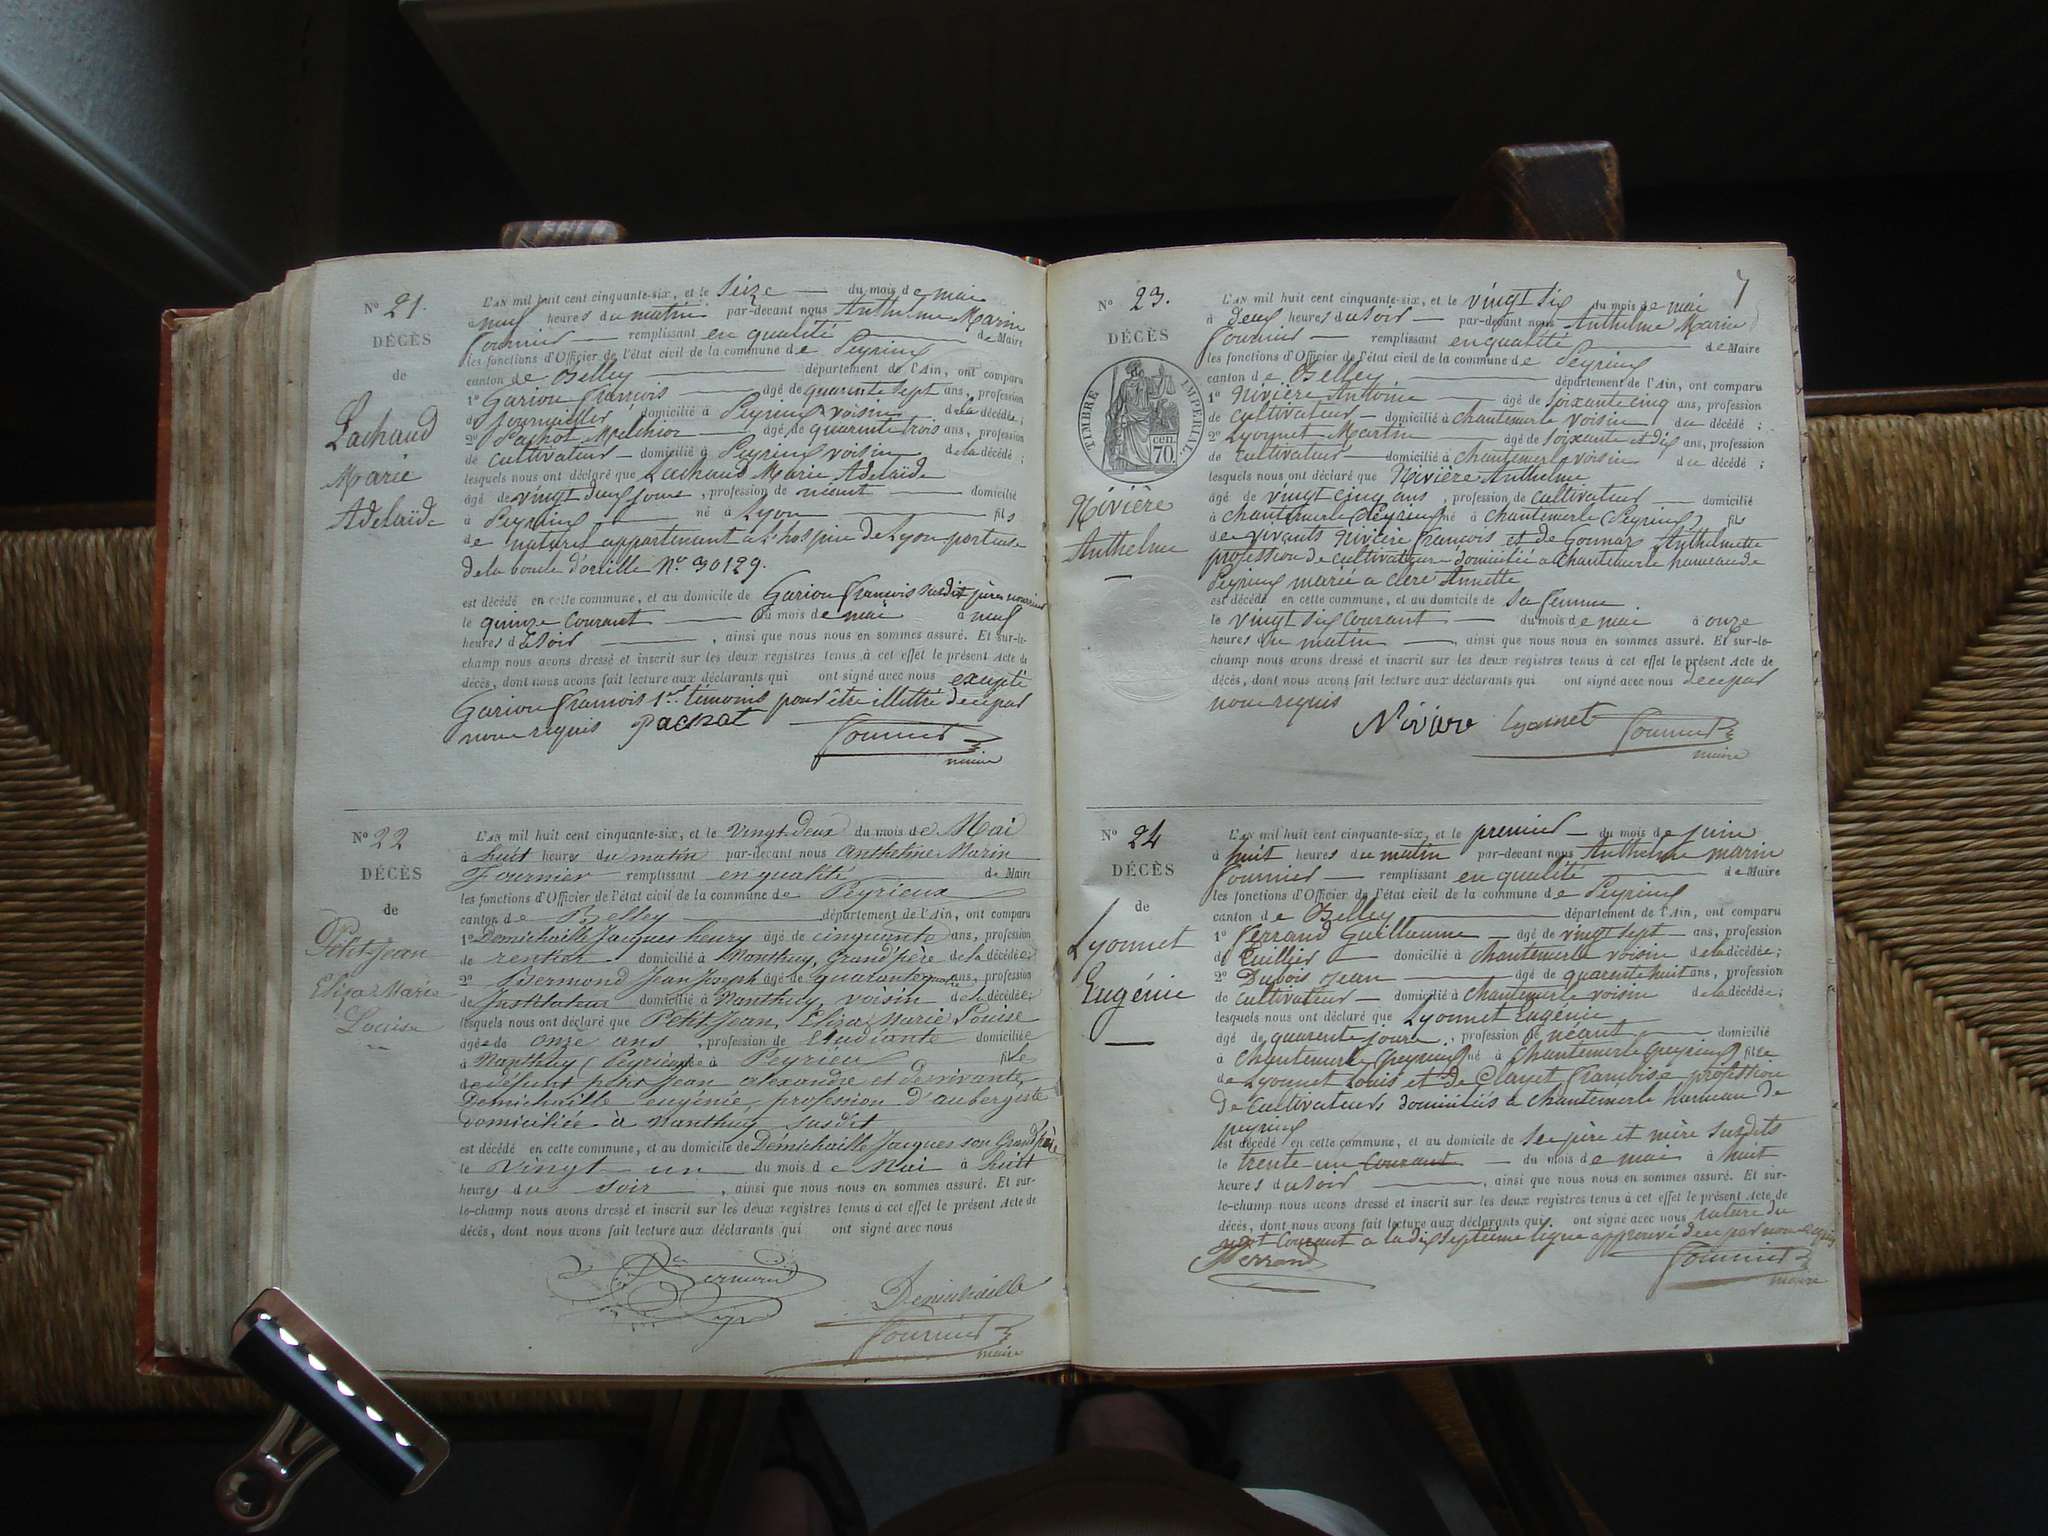 N.º 21.
DÉCÈS
de
Lachaud
Marie
Adelaïde
L'AN mil huit cent cinquante-six, et le Seize du mois de mai
à neuf heures du matin par-devant nous Anthelme Marin
Fournier remplissant en qualité de Maire
les fonctions d'Officier de l'état civil de la commune de Peyrieux
canton de Belley département de l'Ain, ont comparu
1º Gariou François âgé de quarante sept ans, profession
de Journalier, domicilié à Peyrieux voisin de la décédée;
2º Pachot Melchior âgé de quarante trois ans, profession
de cultivateur domicilié à Peyrieux voisin de la décédé;
lesquels nous ont déclaré que Lachaud Marie Adelaïde
âgé de vingt deux jours, profession de néant domicilié
à Peyrieux né à Lyon fils
de naturel appartenant à l'hospice de Lyon porteuse
de la boucle d'oreille Nº 30129.
est décédé en cette commune, et au domicile de Gariou François susdit père nourricier
le quinze courant du mois de mai à neuf
heures du soir, ainsi que nous nous en sommes assuré. Et sur-le-
champ nous avons dressé et inscrit sur les deux registres tenus à cet effet le présent Acte de
décès, dont nous avons fait lecture aux déclarants qui ont signé avec nous excepté
Gariou François 1er témoins pour être illettré de ce par
nous requis Pachot Fournier
maire
N.º 22
DÉCÈS
de
Petit-Jean
Eliza Marie
Louise
L'AN mil huit cent cinquante-six, et le Vingt-deux du mois de Mai
à huit heures du matin par-devant nous Anthelme Marin
Fournier remplissant en qualité de Maire
les fonctions d'Officier de l'état civil de la commune de Peyrieux
canton de Belley département de l'Ain, ont comparu
1º Demichaille Jacques henry âgé de cinquante ans, profession
de rentier domicilié à Nanthuy, Grand père de la décédée;
2º Bermond Jean Joseph âgé de quarante quatre ans, profession
de Instituteur domicilié à Nanthuy, voisin de la décédée;
lesquels nous ont déclaré que Petit Jean, Eliza Marie Louise
âgée de onze ans, profession de Etudiante domiciliée
à Nanthuy (Peyrieux) née à Peyrieu fille
de défunt petit jean alexandre et de vivante
Demichaille eugénie profession d'aubergiste
domiciliée à Nanthuy susdit
est décédé en cette commune, et au domicile de Démichaille Jacques son Grand père
le vingt un du mois de Mai à huit
heures du soir, ainsi que nous nous en sommes assuré. Et sur-
le-champ nous avons dressé et inscrit sur les deux registres tenus à cet effet le présent Acte de
décès, dont nous avons fait lecture aux déclarants qui ont signé avec nous
Bermond
Demichaille
Fournier
maire
7
N.º 23.
DÉCÈS
TIMBRE IMPERIAL
70 CEN.
Rivière
Anthelme
L'AN mil huit cent cinquante-six, et le vingt six du mois de mai
à deux heures du soir par-devant nous Anthelme Marin
Fournier remplissant en qualité de Maire
les fonctions d'Officier de l'état civil de la commune de Peyrieux
canton de Belley département de l'Ain, ont comparu
1º Rivière Antoine âgé de soixante cinq ans, profession
de cultivateur domicilié à Chantemerle voisin du décédé;
2º Lyonnet Martin âgé de soixante et dix ans, profession
de cultivateur domicilié à Chantemerle voisin du décédé;
lesquels nous ont déclaré que Rivière Anthelme
âgé de vingt cinq ans, profession de cultivateur domicilié
à Chantemerle (Peyrieux) né à Chantemerle (Peyrieux) fils
de vivants Rivière François et de Gonnar Anthelmette
profession de cultivateurs domicilié à Chantemerle hameau de
Peyrieux marié à Clere Annette
est décédé en cette commune, et au domicile de sa femme.
le vingt six courant du mois de mai à onze
heures du matin, ainsi que nous nous en sommes assuré. Et sur-le-
champ nous avons dressé et inscrit sur les deux registres tenus à cet effet le présent Acte de
décès, dont nous avons fait lecture aux déclarants qui ont signé avec nous de ce par
nous requis
Rivière Lyonnet Fournier
maire
N.º 24
DÉCÈS
de
Lyonnet
Eugénie
L'AN mil huit cent cinquante-six, et le premier du mois de juin
à huit heures du matin par-devant nous Anthelme marin
Fournier remplissant en qualité de Maire
les fonctions d'Officier de l'état civil de la commune de Peyrieux
canton de Belley département de l'Ain, ont comparu
1º Ferrand Guillaume âgé de vingt sept ans, profession
de Tuillier domicilié à Chantemerle voisin de la décédée;
2º Dubois Jean âgé de quarente huit ans, profession
de cultivateur domicilié à Chantemerle voisin de la décédée;
lesquels nous ont déclaré que Lyonnet Eugénie
âgé de quarente jours, profession de néant domicilié
à Chantemerle (Peyrieux) né à Chantemerle (Peyrieux) fille
de Lyonnet Louis et de Clayet Françoise profession
de cultivateurs domiciliés à Chantemerle hameau de
peyrieux
est décédé en cette commune, et au domicile de ses père et mère susdits
le trente un courant du mois de mai à huit
heures du soir, ainsi que nous nous en sommes assuré. Et sur-
le-champ nous avons dressé et inscrit sur les deux registres tenus à cet effet le présent Acte de
décès, dont nous avons fait lecture aux déclarants qui ont signé avec nous rature du
mot Courant a la dix septième ligne approuvé de ce par nous requis
Ferrand Fournier
maire